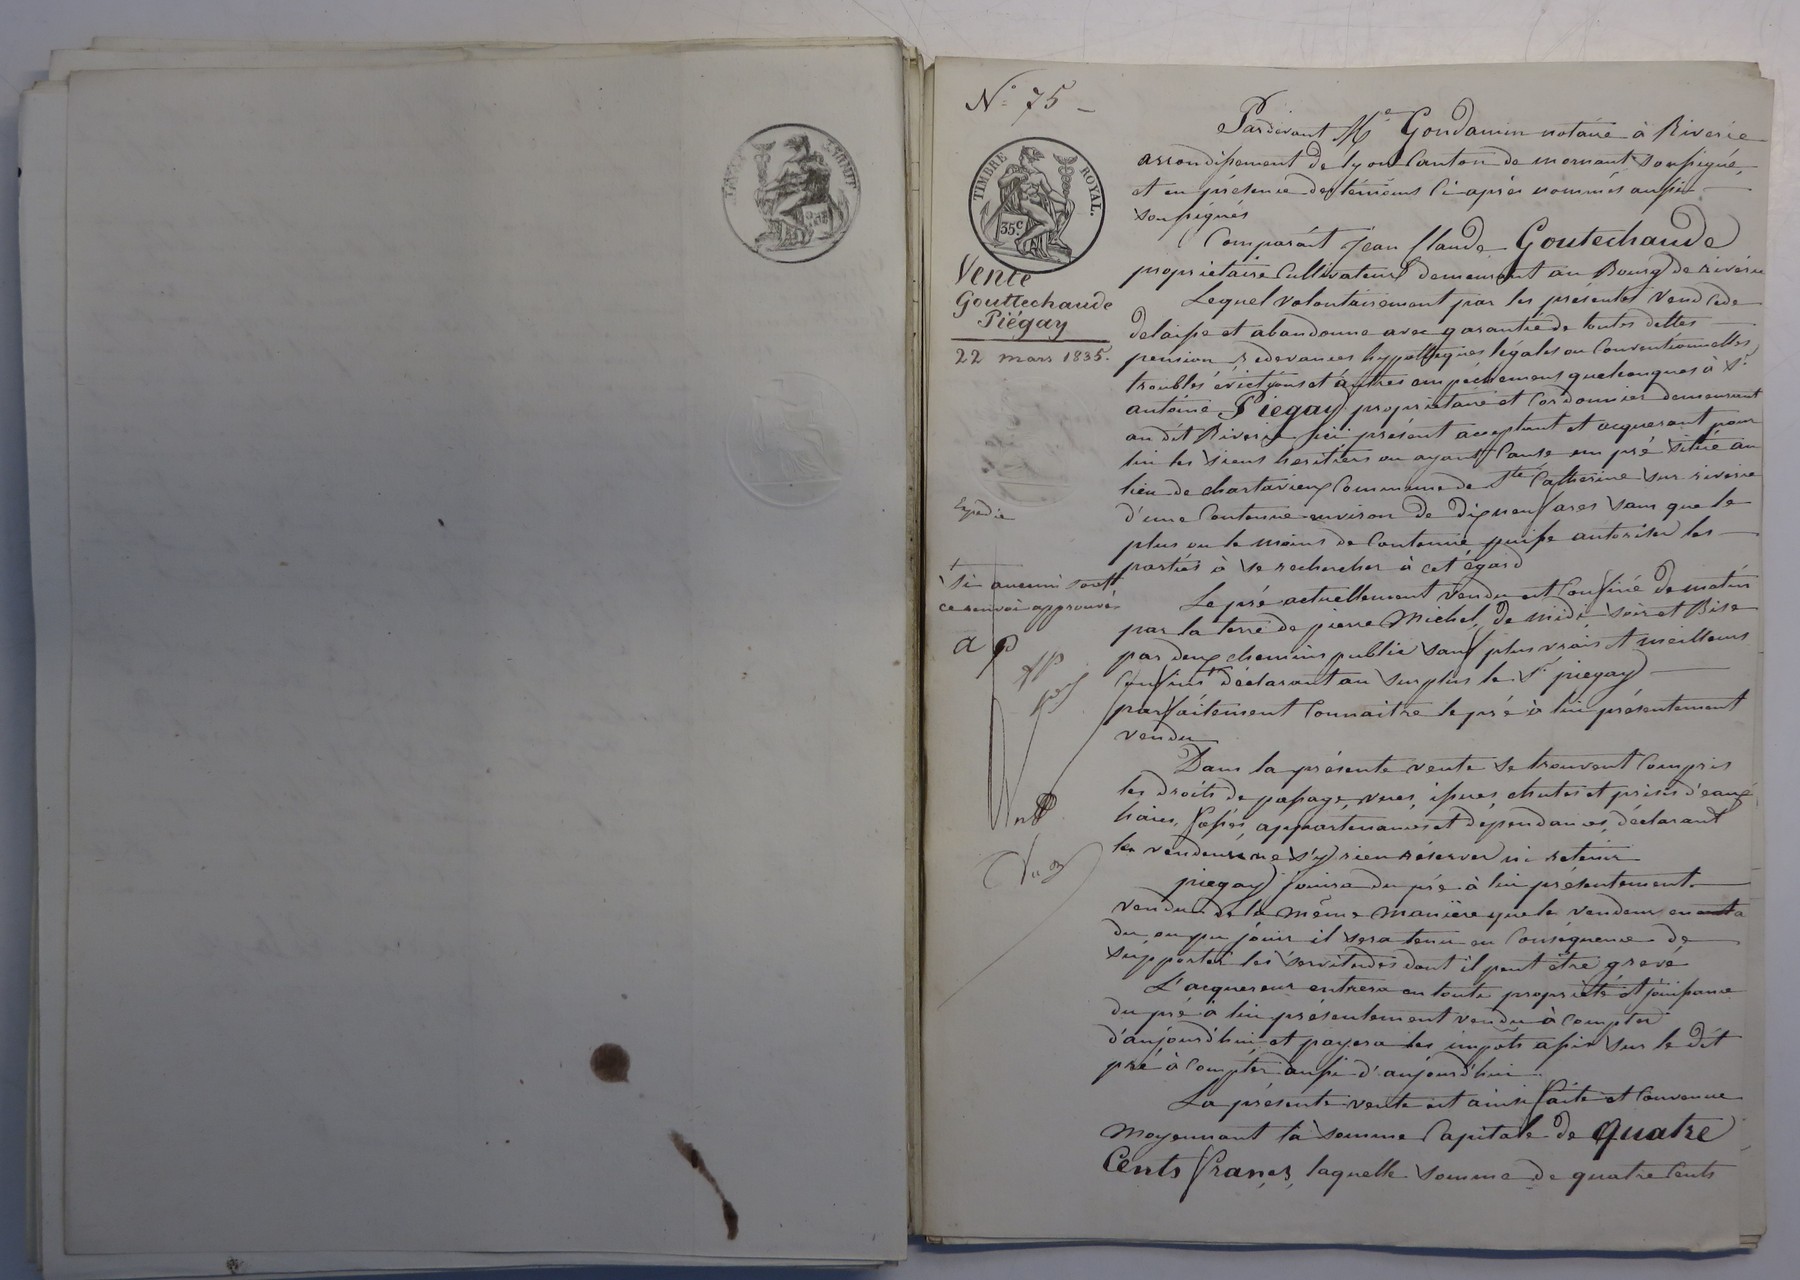 N° 75 -
TIMBRE ROYAL.
35c.
Vente
Gouttechaude
Piégay
22 mars 1835.
Expedié
si aucuns sont
ce renvoi approuvé
a P
Pardevant Me Gondamin notaire à Riverie
arrondissement de Lyon Canton de mornant soussigné,
et en présence des témoins Ci-après nommés aussi
soussignés
Comparait Jean Claude Goutechaude
propriétaire Cultivateur demeurant au Bourg de riverie
Lequel volontairement par les présentes vend Cede
delaisse et abandonne avec garantie de toutes dettes
pension redevances hypothèques légales ou Conventionnelles
troubles évictions et autres empéchemens quelconques à Sr.
antoine Piegay propriétaire et Cordonnier demeurant
au dit Riverie ici présent acceptant et acquerant pour
lui les siens heritiers ou ayant Cause un pré situé au
lieu de chartavieux Commune de Ste Catherine sur riverie
d'une Contenue environ de dix neuf ares sans que le
plus ou le moins de Contenue puisse autoriser les
parties à se rechercher à cet égard
Le pré actuellement vendu est Confiné de matin
par la terre de pierre Michel, de midi soir et Bise
par deux chemins public sauf plus vrais et meilleurs
Confins + déclarant au surplus le Sr. piegay
parfaitement Connaitre le pré à lui présentement
vendu
Dans la présente vente se trouvent Compris
les droits de passage, vues, issues, chutes et prises d'eaux,
haies, fossés, appartenances et dépendances, déclarant
le vendeur ne s'y rien réserver ni retenir
piegay jouira du pré à lui présentement
vendu de la même manière que le vendeur en a
du ou pu jouir il sera tenu en Conséquence de
supporter les servitudes dont il peut être grevé
L'acquereur entrera en toute propriété et jouissance
du pré à lui présentement vendu à Compter
d'aujourd'hui et payera les impots assis sur le dit
pré à Compter aussi d'aujourd'hui
La présente vente est ainsi faite et Convenue
Moyennant la somme Capitale de quatre
Cents francs, laquelle somme de quatre Cents